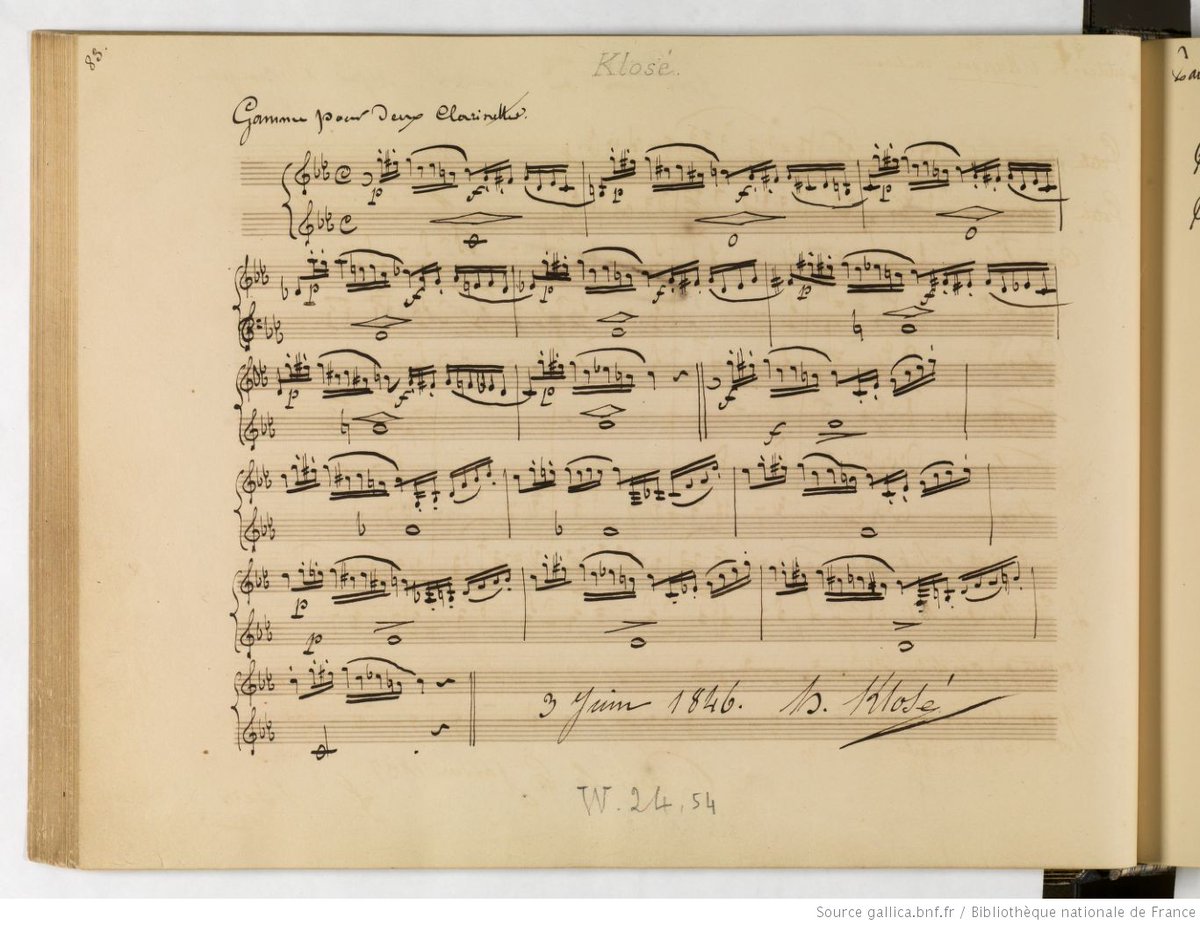 83.
Klosé.
Gamme pour deux Clarinettes.
p f p f p
p f p f p f
p f p f
f
p
p
3 Juin 1846. H. Klosé
W. 24, 54
Source gallica.bnf.fr / Bibliothèque nationale de France